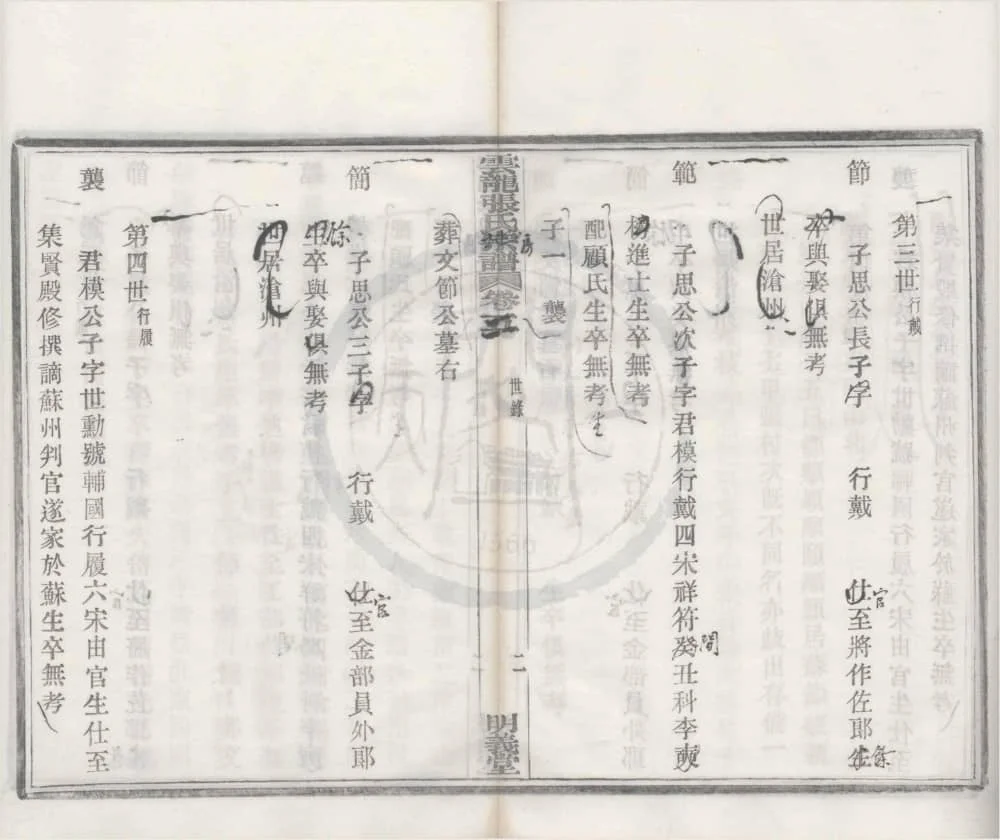 第三世行戴
節 子思公長子字 行戴 仕至將作佐郎生
官
餘
卒與娶俱無考
世居滄州
範 子思公次子字君模行戴四宋祥符癸丑科李
間
榜進士生卒無考
配顧氏生卒無考
生
子一 襲
雲龍張氏 譜 卷
世錄
二
明義堂
葬文節公墓右
簡 子思公三子字 行戴 仕至金部員外郎
官
生卒與娶俱無考
餘
世居滄州
第四世行履
襲 君模公子字世勳號輔國行履六宋由官生仕至
集賢殿修撰謫蘇州判官遂家於蘇生卒無考